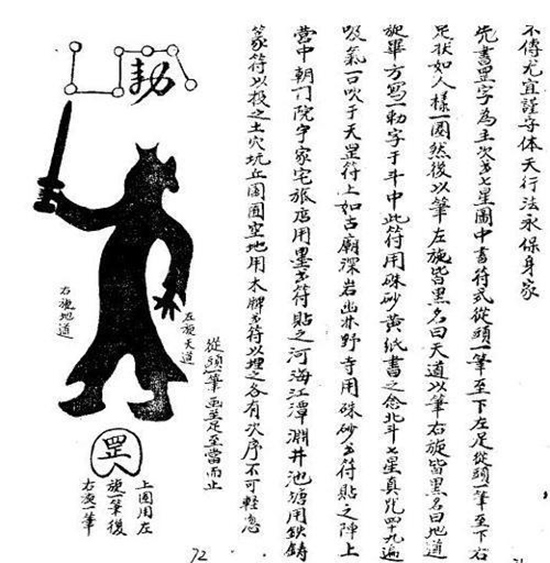 不傳尤宜謹守体天行法永保身家
先書罡字為主次书七星圖中書符式從頭一筆至下左足從頭一筆至下右
足狀如人樣一圈然後以筆左旋皆黑名曰天道以筆右旋皆黑名曰地道
旋畢方寫一勅字于斗中此符用硃砂黃紙書之念北斗七星真咒四十九遍
吸氣一口吹于天罡符上如古廟深岩幽林野寺用硃砂书符貼之陣上
營中朝门院宇家宅旅店用墨书符貼之河海江潭淵井池塘用鉄鑄
篆符以投之土穴坑丘園囿空地用木牌书符以埋之各有次序不可輕忽
從頭一筆画並足至當而止
勅
左旋天道
右旋地道
罡
上圈用左
旋一筆後
右旋一筆
72